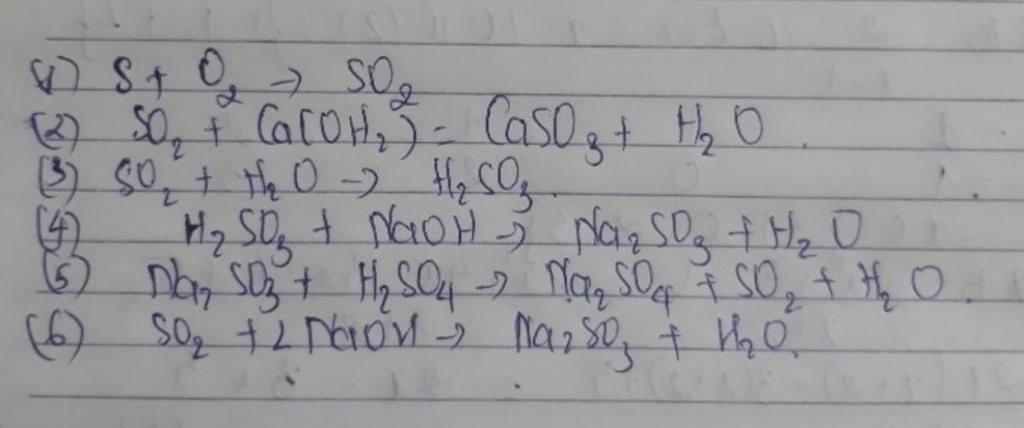 (1) S + O₂ → SO₂
(2) SO₂ + Ca(OH₂) = CaSO₃ + H₂O.
(3) SO₂ + H₂O → H₂SO₃.
(4) H₂SO₃ + NaOH → Na₂SO₃ + H₂O
(5) Na₂SO₃ + H₂SO₄ → Na₂SO₄ + SO₂ + H₂O.
(6) SO₂ + 2NaOH → Na₂SO₃ + H₂O.